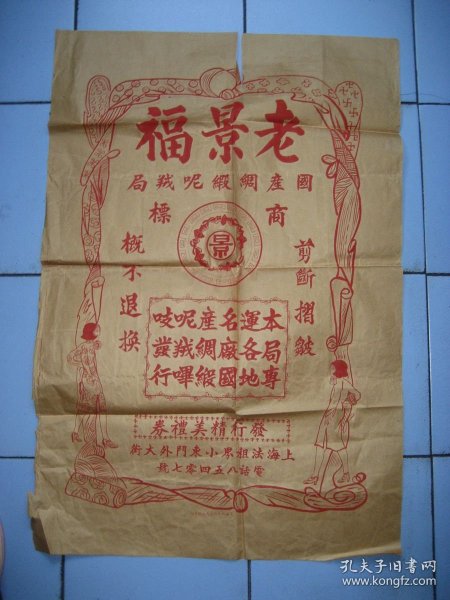 老景福
國產綢緞呢羢局
商標
景
剪斷摺皺
概不退換
本局專
運各地
名廠國
產綢緞
呢羢嗶
吱發行
發行精美禮券
上海法租界小東門外大街
電話八五四零七號
孔夫子旧书网
www.kongfz.com